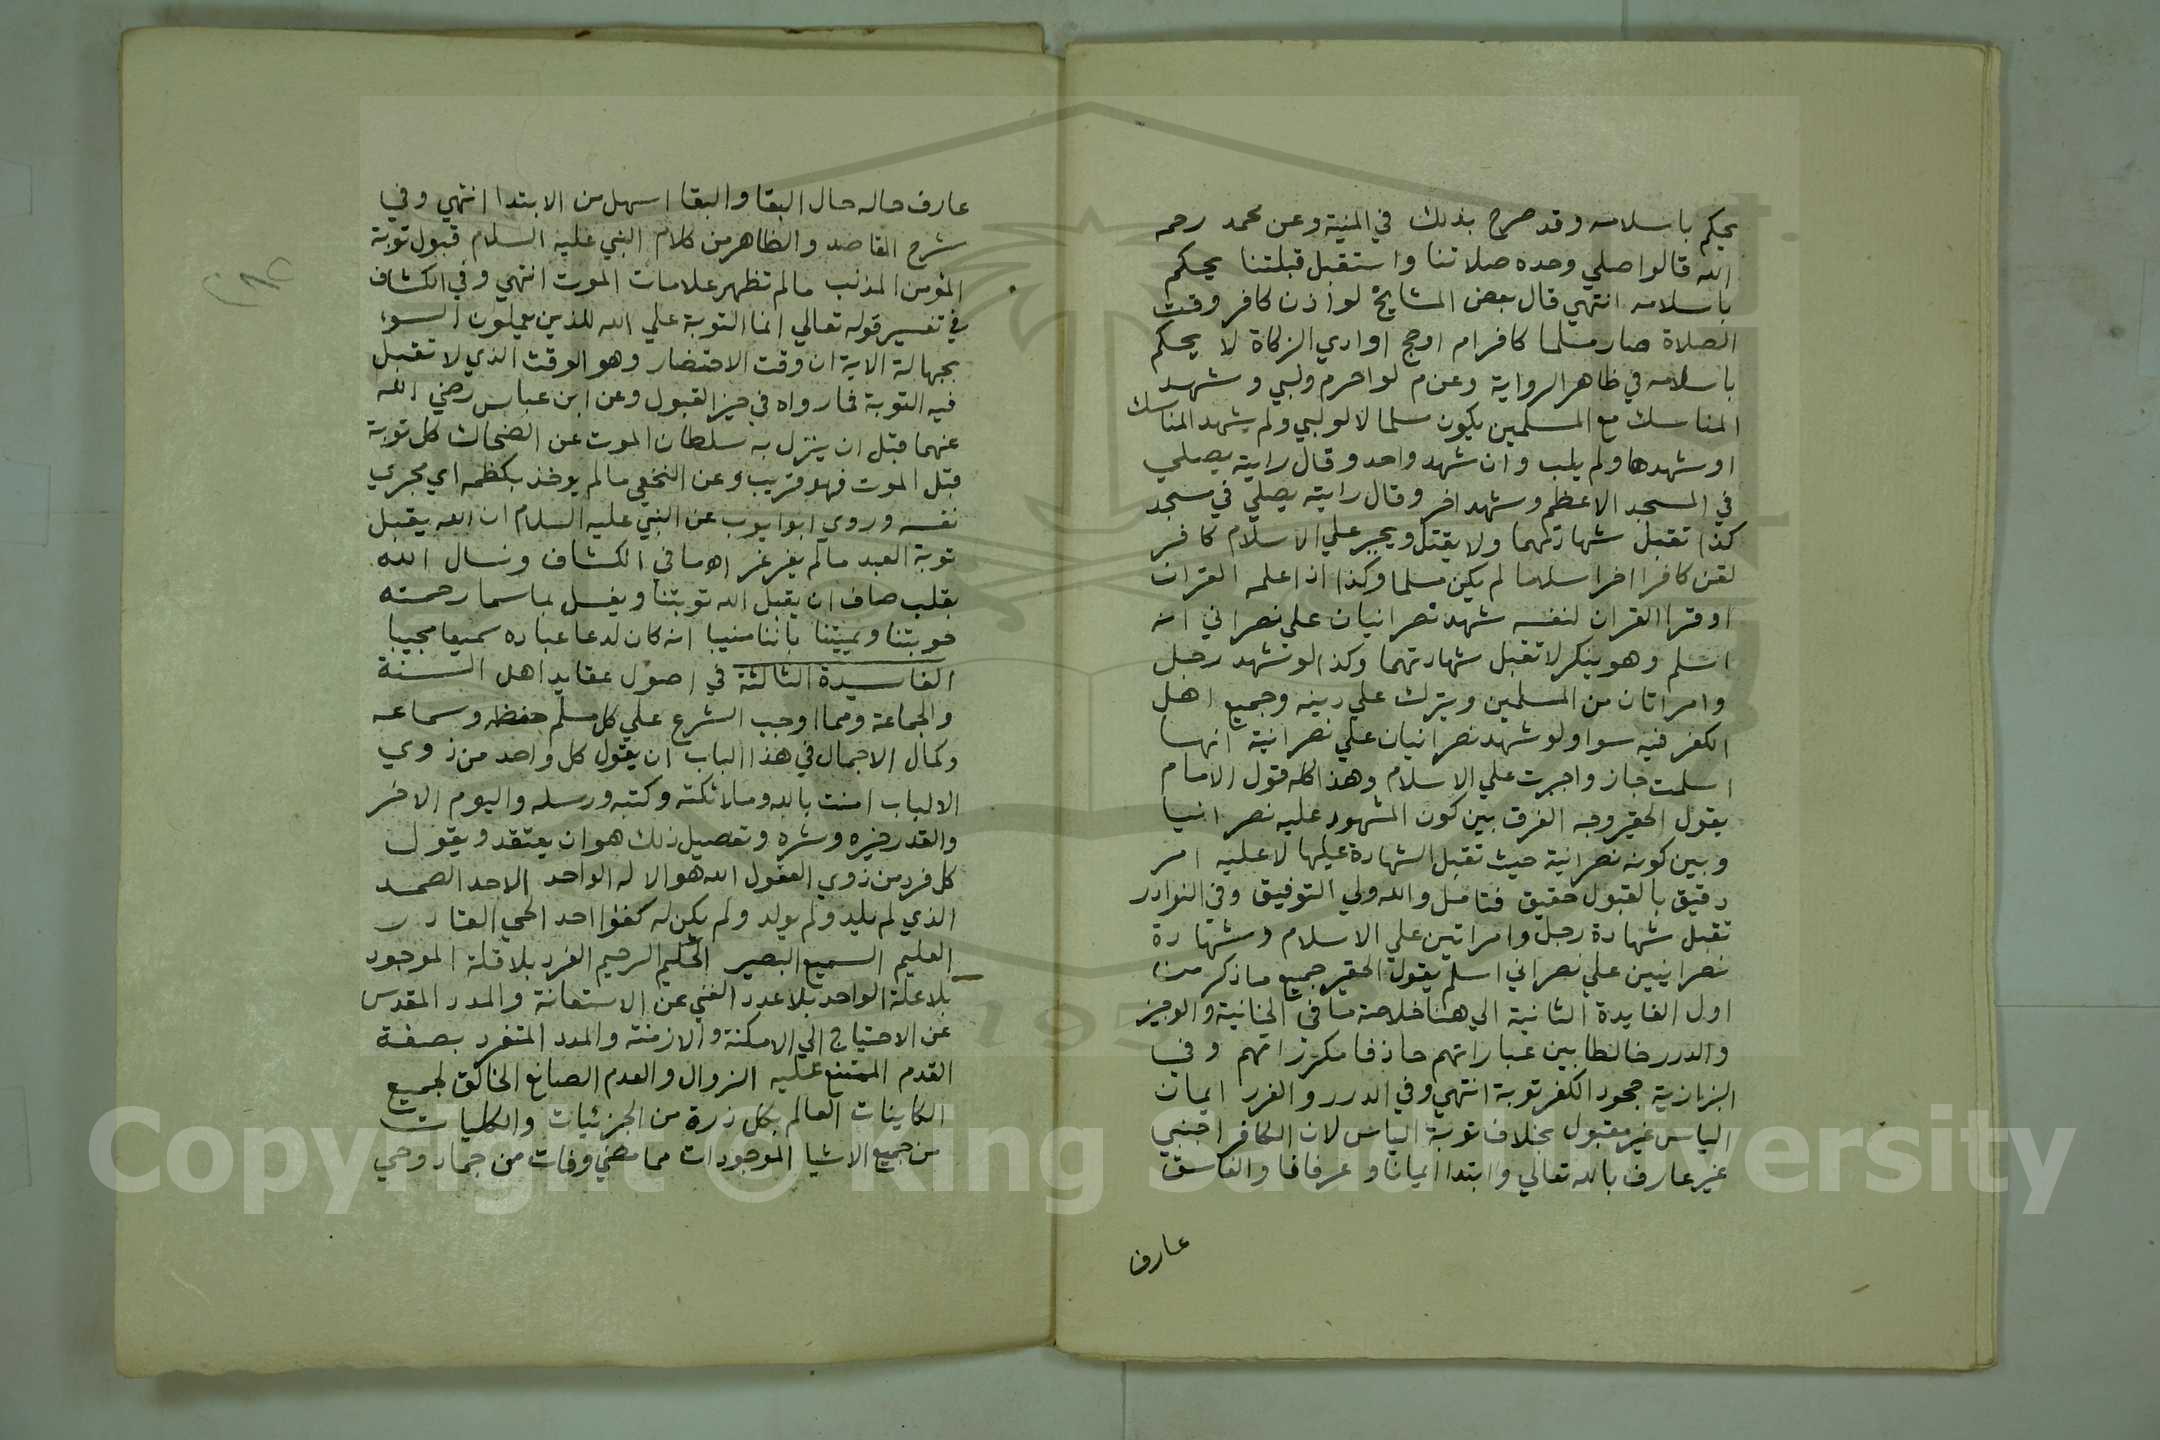 يحكم باسلامه وقد صرح بذلك في المنية وعن محمد رحمه
الله قالوا صلي وحده صلاتنا واستقبل قبلتنا يحكم
باسلامه انتهي قال بعض المشايخ لو اذن كافر وقت
الصلاة صار مسلما كافر ام او حج او ادي الزكاة لا يحكم
باسلامه في ظاهر الرواية وعن م لو احرم ولبي وشهد
المناسك مع المسلمين يكون مسلما لا لو لبي ولم يشهد المناسك
او شهدها ولم يلب وان شهد واحد وقال رايته يصلي
في المسجد الاعظم وشهد اخر وقال رايته يصلي في مسجد
كذا تقبل شهادتهما ولا يقتل ويجبر علي الاسلام كافر
لقن كافرا اخر اسلاما لم يكن مسلما وكذا اذا علمه القران
او قرا القران لنفسه شهد نصرانيان علي نصراني انه
اسلم وهو ينكر لا تقبل شهادتهما وكذا لو شهد رجل
وامراتان من المسلمين ويترك علي دينه وجميع اهل
الكفر فيه سوا ولو شهد نصرانيان علي نصرانية انها
اسلمت جاز واجبرت علي الاسلام وهذا كله قول الامام
يقول الحقير وجه الفرق بين كون المشهود عليه نصرانيا
وبين كونه نصرانية حيث تقبل الشهادة عليها لا عليه امر
دقيق بالقبول حقيق فتامل والله ولي التوفيق وفي النوادر
تقبل شهادة رجل وامراتين علي الاسلام وشهادة
نصرانيين علي نصراني اسلم يقول الحقير جميع ما ذكر من
اول الفايدة الثانية الي هنا خلاصة ما في الخانية والوجيز
والدرر خالطا بين عباراتهم حاذفا مكرراتهم وفي
البزازية جحود الكفر توبة انتهي وفي الدرر والغرر ايمان
الياس غير مقبول بخلاف توبة الياس لان الكافر اجنبي
غير عارف بالله تعالي وابتدا ايمانا وعرفانا والفاسق
عارف
عارف حاله حال البقا والبقا اسهل من الابتدا انتهي وفي
شرح المقاصد والظاهر من كلام النبي عليه السلام قبول توبة
المؤمن المذنب مالم تظهر علامات الموت انتهي وفي الكشاف
في تفسير قوله تعالي انما التوبة علي الله للذين يعملون السوء
بجهالة الاية ان وقت الاحتضار وهو الوقت الذي لا تقبل
فيه التوبة فما رواه في حيز القبول وعن ابن عباس رضي الله
عنهما قبل ان ينزل به سلطان الموت عن الضحاك كل توبة
قبل الموت فهو قريب وعن النخعي مالم يوخذ بكظمه اي مجري
نفسه وروي ابو ايوب عن النبي عليه السلام ان الله يقبل
توبة العبد مالم يغرغر اه ما في الكشاف ونسال الله
بقلب صاف ان يقبل الله توبتنا ويغسل بما سما رحمته
حوبتنا ويميتنا باننا منيبا انه كان لدعا عباده سميعا مجيبا
الفايدة الثالثة في اصول عقايد اهل السنة
والجماعة ومما اوجب الشرع علي كل مسلم حفظه وسماعه
وكمال الاجمال في هذا الباب ان يقول كل واحد من ذوي
الالباب امنت بالله وملائكته وكتبه ورسله واليوم الاخر
والقدر خيره وشره وتفصيل ذلك هو ان يعتقد ويقول
كل فرد من ذوي العقول الله هو الاله الواحد الاحد الصمد
الذي لم يلد ولم يولد ولم يكن له كفوا احد الحي القادر
العليم السميع البصير الحكيم الرحيم الفرد بلا قلة الموجود
بلا علة الواحد بلا عدد الغني عن الاستعانة والمدد المقدس
عن الاحتياج الي الامكنة والازمنة والمدد المتفرد بصفة
القدم الممتنع عليه الزوال والعدم الصانع الخالق لجميع
الكاينات العالم بكل ذرة من الجزئيات والكليات
من جميع الاشيا الموجودات مما مضي وفات من جماد وحي
Copyright © King Saud University